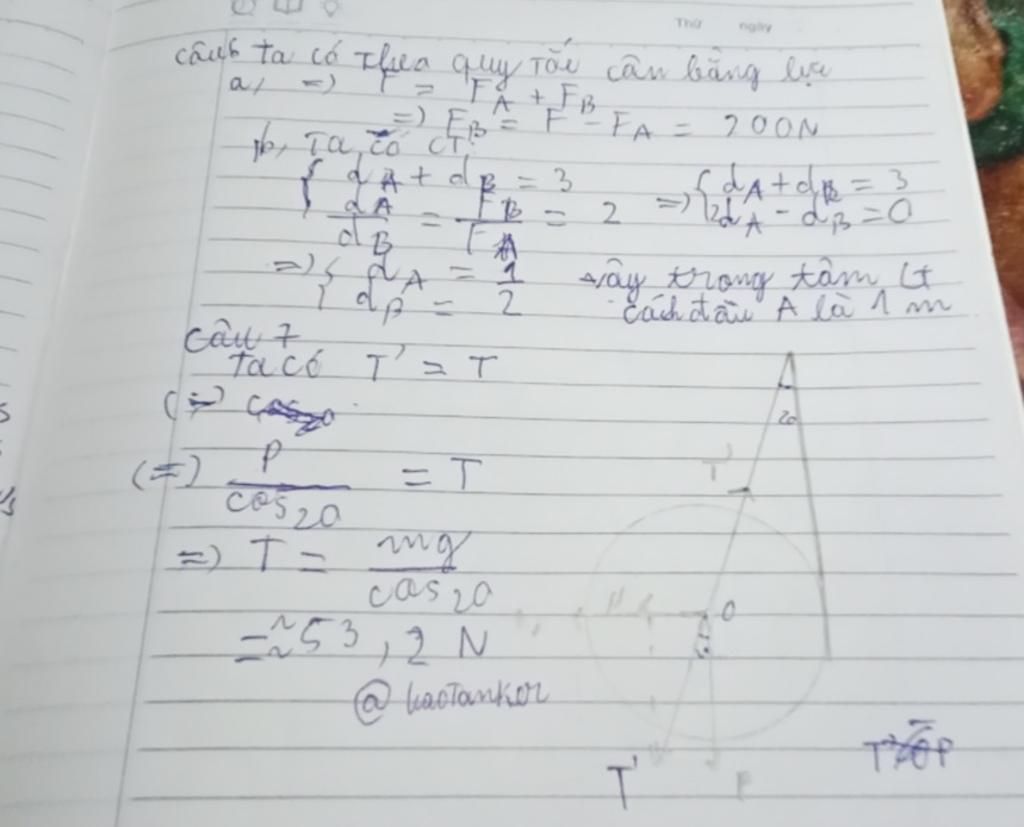 Thứ ngày
câu6 ta có theo quy tắc cân bằng lực
a, => F = F_A + F_B
=> F_B = F - F_A = 200N
b, Ta có CT
{ d_A + d_B = 3 => { d_A + d_B = 3
d_A/d_B = F_B/F_A = 2 2d_A - d_B = 0
=> { d_A = 1 vậy trọng tâm
d_B = 2 cách đầu A là 1 m
câu 7
Ta có T' = T
(=) P/cos20 = T
=> T = mg/cos20
=≈ 53,2 N
20
T'
N
O
T'
P